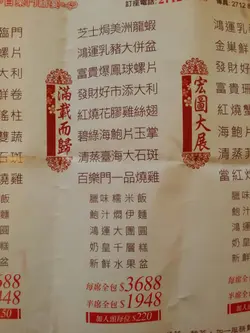 訂座電話:
2712
臨門
螺片
大利
鮮卷
瑤柱
雙蔬
石斑
燒雞
3688
448
50
滿載而歸
芝士焗美洲龍蝦
鴻運乳豬大併盆
富貴爆鳳球螺片
發財好市添大利
紅燒花膠雞絲翅
碧綠海鮑片玉掌
清蒸臺海大石斑
百樂門一品燒雞
臘味糯米飯
鮑汁燜伊麵
鴻運大團圓
奶皇千層糕
新鮮水果盆
每席全包 $3688
半席全包 $1948
加人頭每位 $220
宏圖大展
鴻運乳
發財好
紅燒
碧綠
清蒸
當紅